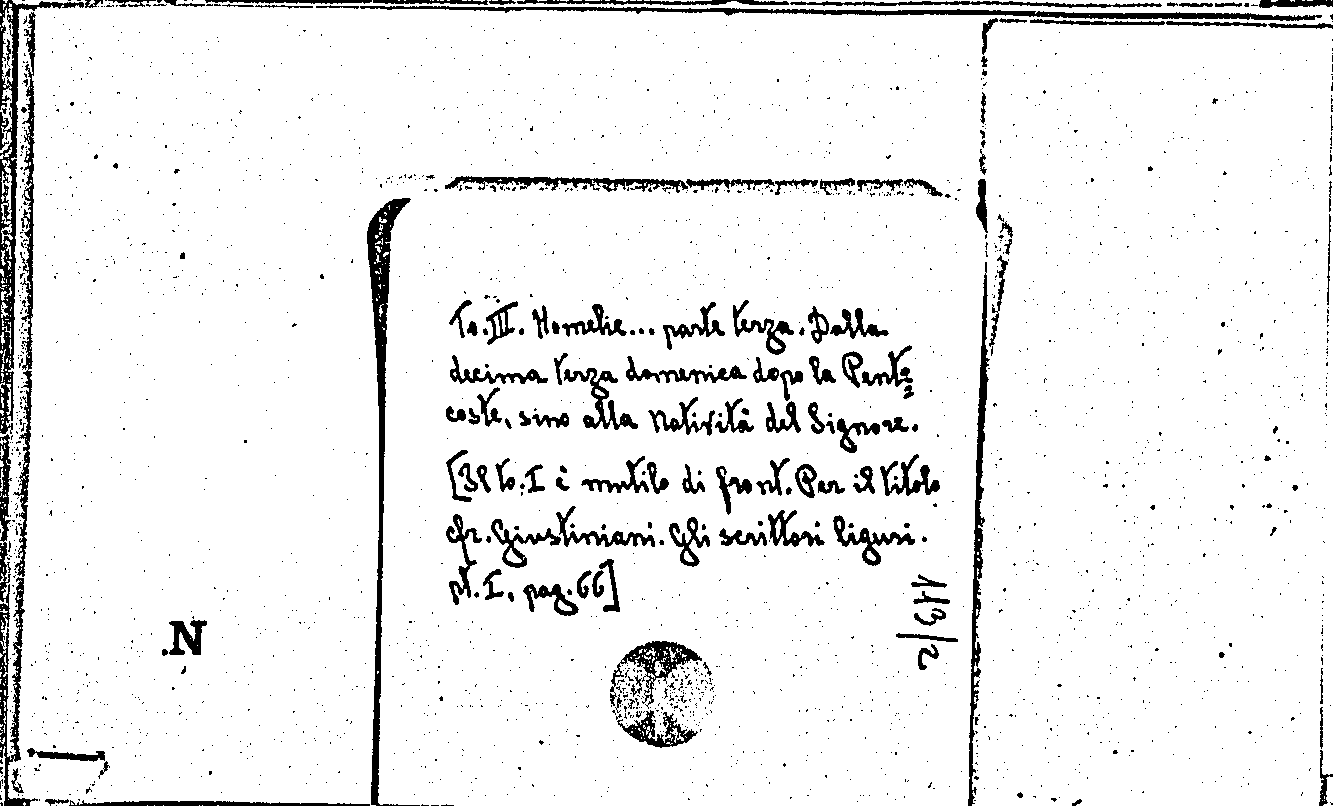 To. III. Homelie... parte terza. Dalla
decima terza domenica dopo la Pente=
coste, sino alla Natività del Signore.
[Il to. I è mutilo di front. Per il titolo
cfr. Giustiniani. Gli scrittori liguri.
pt. I, pag. 66]
113/2
.N